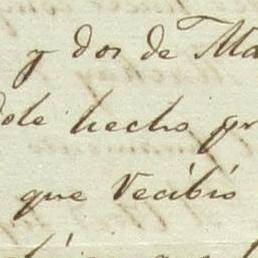 y dos de Ma
dole hecho pr
que Recibió